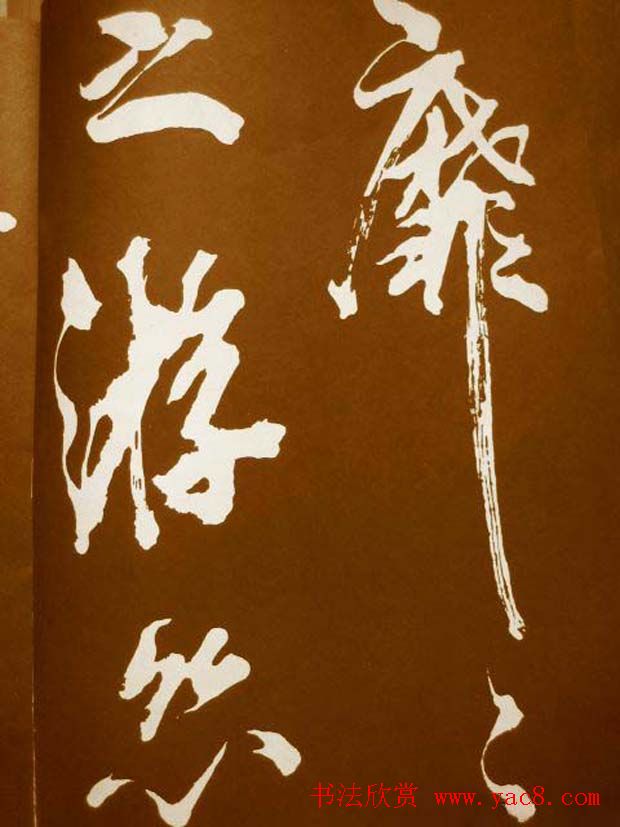 靡々
之游絲
书法欣赏 www.yac8.com